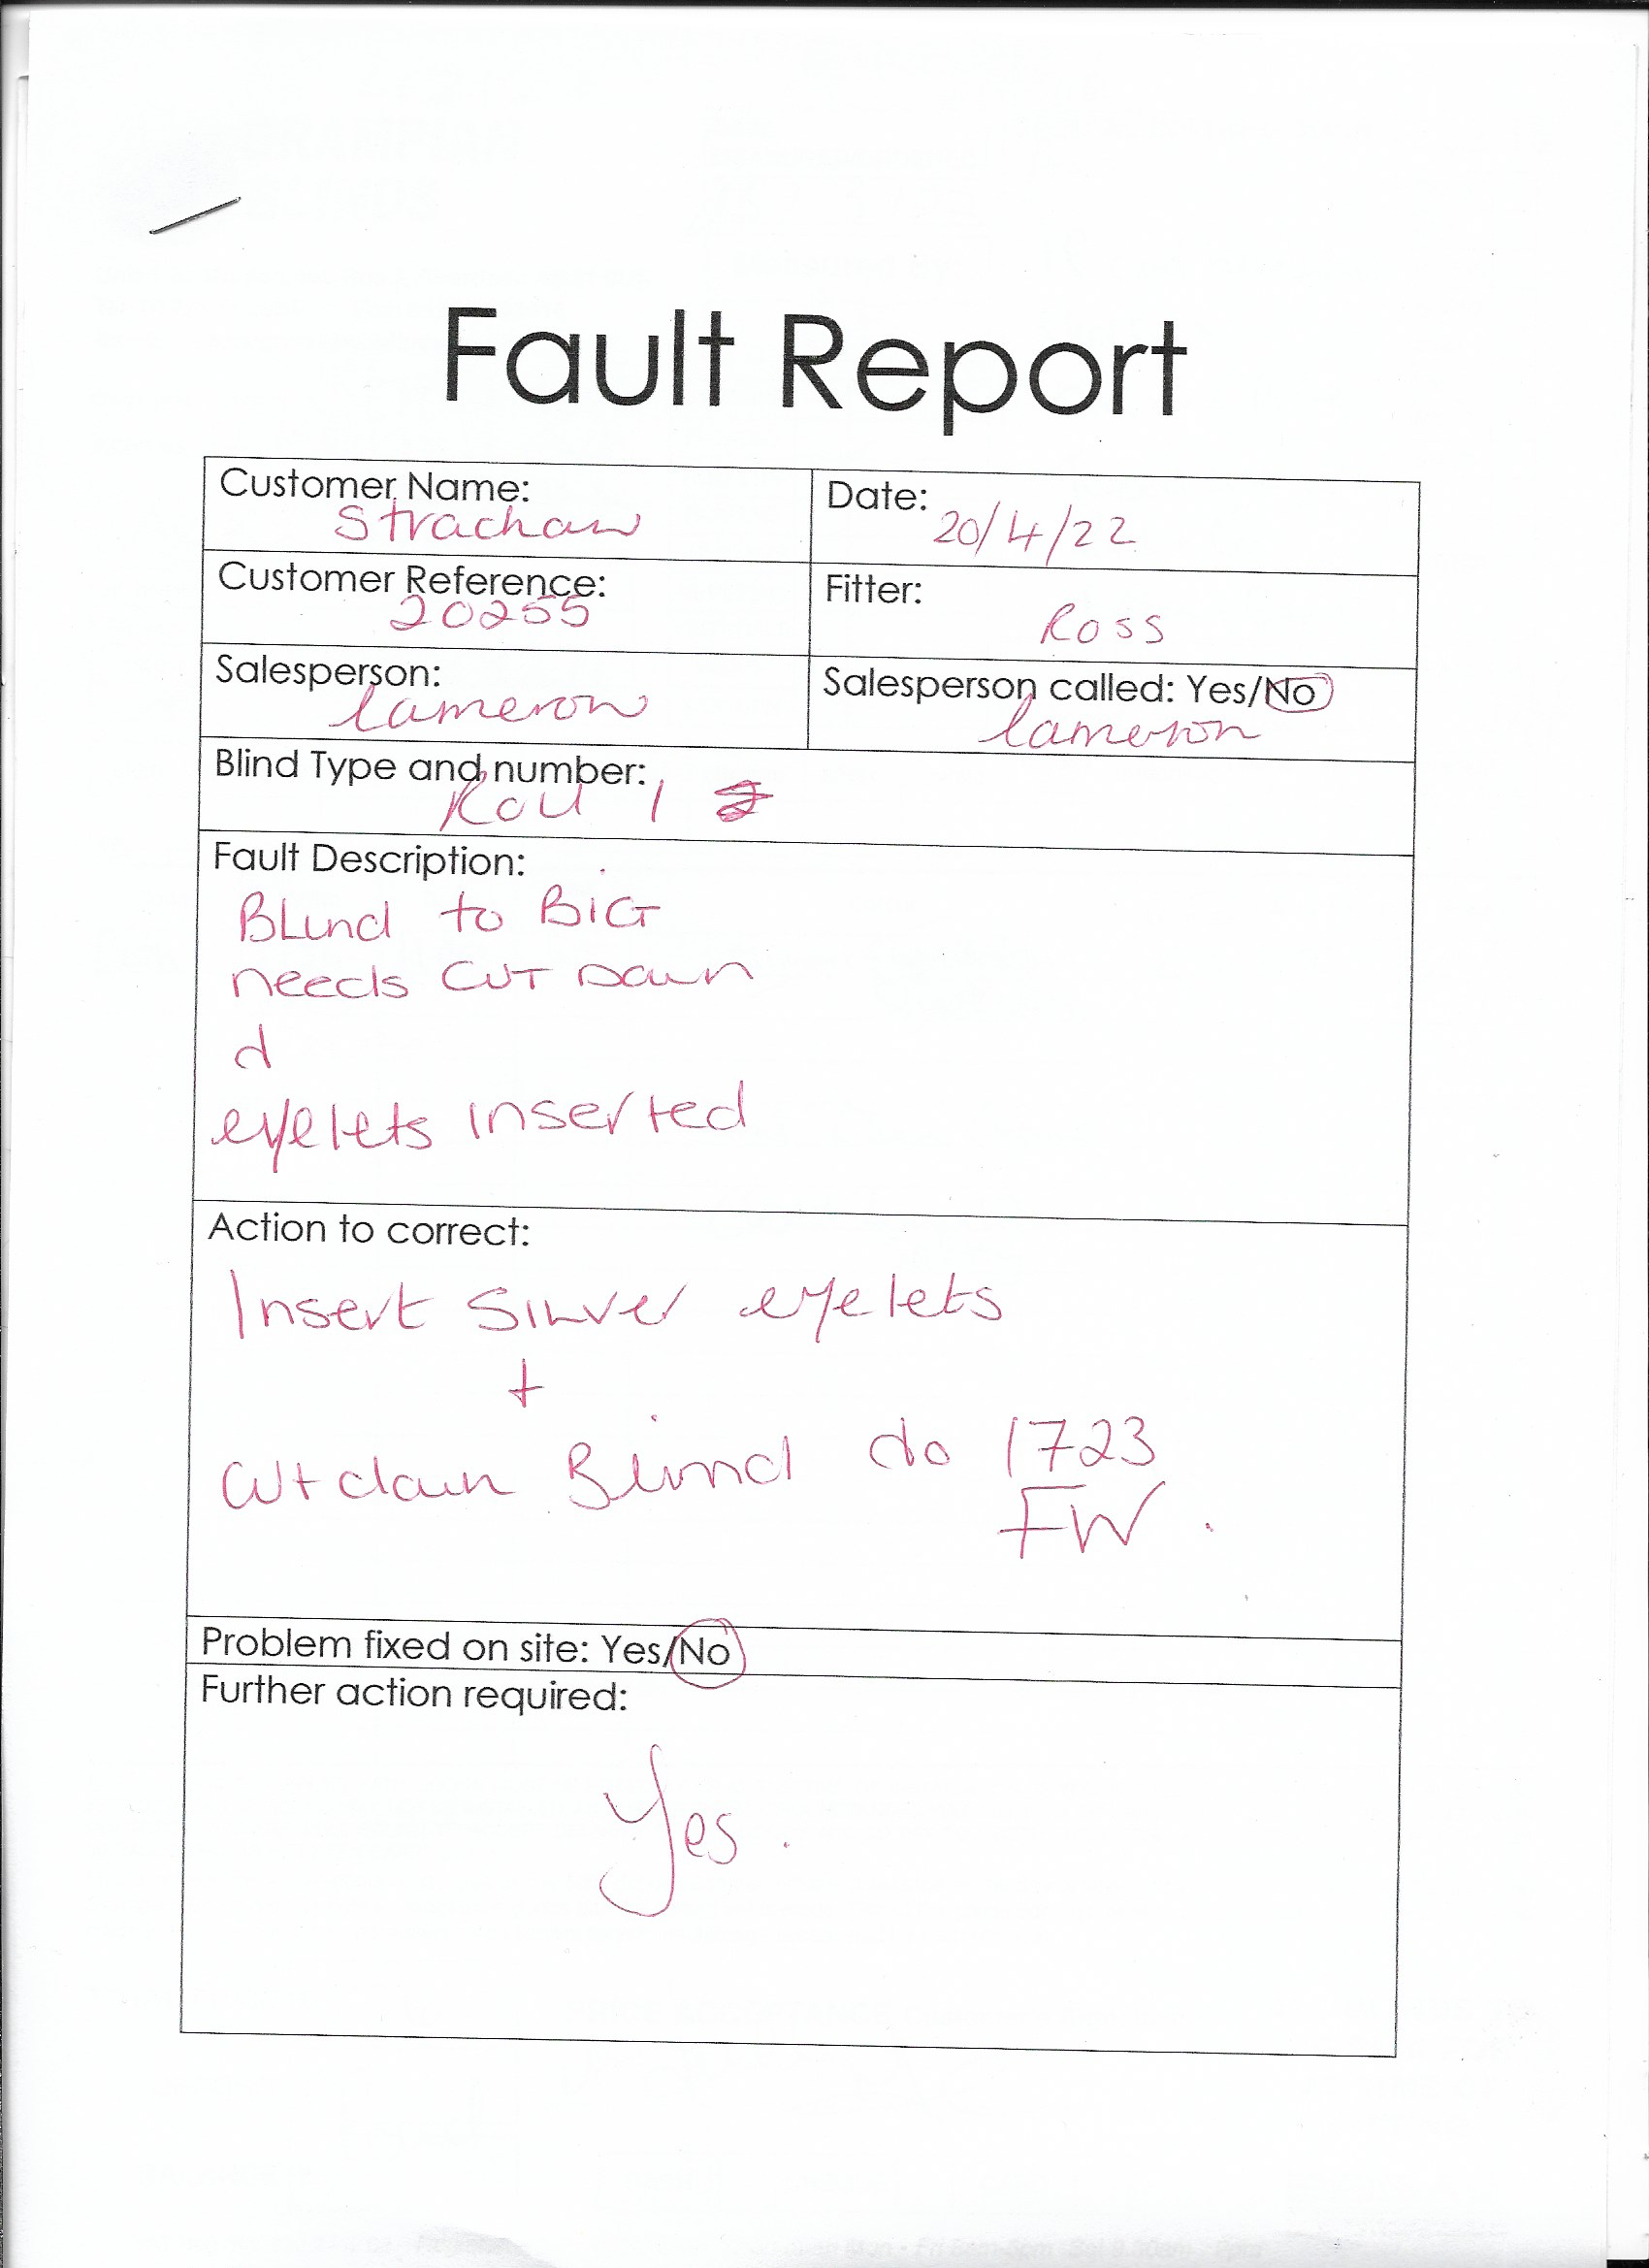 Fault Report
Customer Name:
Strachan
Date:
20/4/22
Customer Reference:
20255
Fitter:
Ross
Salesperson:
Cameron
Salesperson called: Yes/No
Cameron
Blind Type and number:
Roll 1
Fault Description:
BLind to BiG
needs CUT Down
d
eyelets inserted
Action to correct:
Insert SiLver eyelets
+
Cut down Blind do 1723
FW.
Problem fixed on site: Yes/No
Further action required:
Yes.